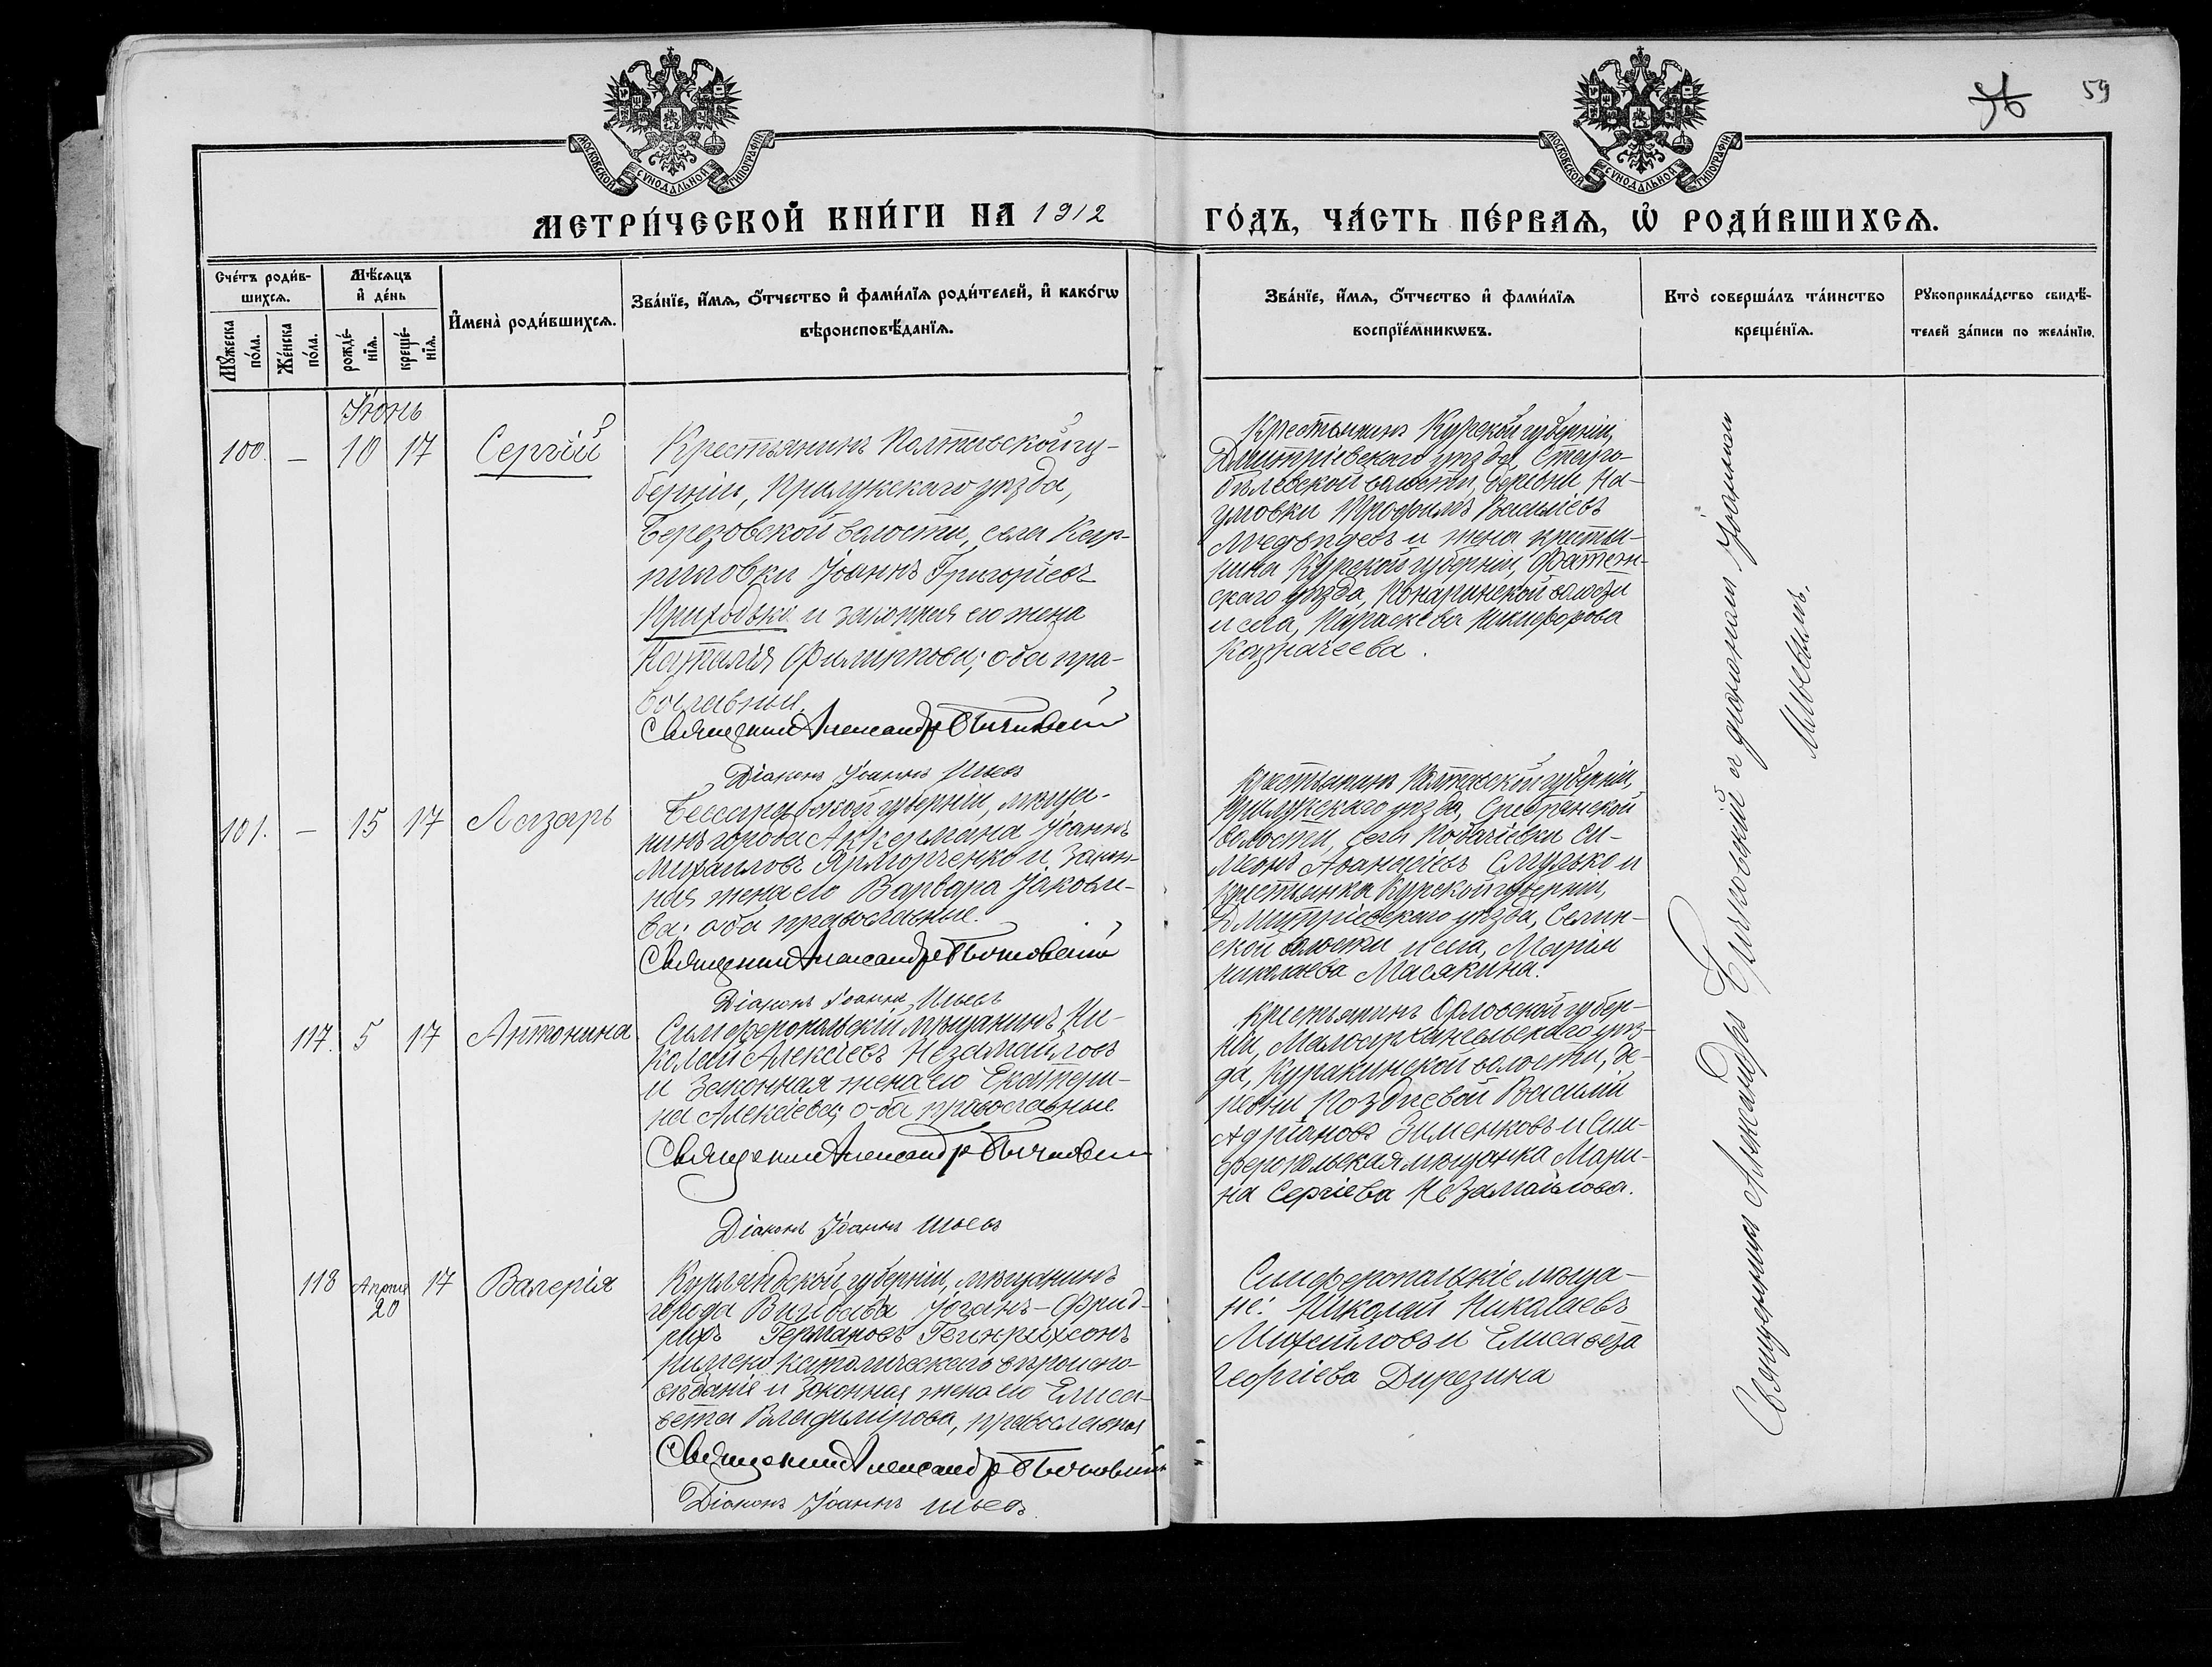 59
МОСКОВСКОЙ СѴНОДАЛЬНОЙ ТИПОГРАФІИ
МОСКОВСКОЙ СѴНОДАЛЬНОЙ ТИПОГРАФІИ
МЕТРИ́ЧЕСКОЙ КНИ́ГИ НА 1912
ГО́ДЪ, ЧА́СТЬ ПЕ́РВАѦ, Ѡ РОДИ́ВШИХСѦ.
Сче́тъ роди́в-
шихсѧ.
Мꙋжеска по́ла.
Же́нска по́ла.
Мѣ́сѧцъ
и҆ де́нь
рожде́-
нїѧ.
креще́-
нїѧ.
И҆мена̀ роди́вшихсѧ.
Зва́нїе, и҆́мѧ, ѻ҆́тчество и҆ фами́лїѧ роди́телей, и҆ како́гѡ
вѣроисповѣ́данїѧ.
Зва́нїе, и҆́мѧ, ѻ҆́тчество и҆ фами́лїѧ
воспрїе́мникѡвъ.
Кто̀ соверша́лъ та́инство
креще́нїѧ.
Рꙋкоприкла́дство свидѣ́-
телей за́писи по жела́нїю.
Іюнь
100. — 10 17 Сергій
Крестьянинъ Полтавской гу-
берніи, Прилукскаго уѣзда,
Березовской волости, села
Іоаннъ Григоріевъ
Приходько и законная его жена
Наталія Филиппова; оба пра-
вославные.
Священникъ Александръ
Діаконъ Іоаннъ Ильевъ
Крестьянинъ Курской губерніи,
Дмитріевскаго уѣзда,
волости, деревни На-
умовки Трофимъ Васильевъ
и жена крестья-
нина Курской губерніи, Фатеж-
скаго уѣзда, волости
и села, Параскева Никифорова
Казначеева.
101. — 15 17 Лазарь
Бессарабской губерніи, мѣща-
нинъ города Аккермана Іоаннъ
Михаиловъ Ярморченко и закон-
ная жена его Варвара Іаковле-
ва; оба православные.
Священникъ Александръ
Діаконъ Іоаннъ Ильевъ
Крестьянинъ Полтавской губерніи,
Прилукскаго уѣзда, Сребрянской
волости, села Си-
меонъ Аѳанасіевъ и
крестьянка Курской губерніи,
Дмитріевскаго уѣзда, Селин-
ской волости и села, Марія
Николаева Масякина.
117. 5 17 Антонина
Симферопольскій мѣщанинъ Ни-
колай Алексіевъ Незамаиловъ
и законная жена его Екатери-
на Алексіева; оба православные
Священникъ Александръ
Діаконъ Іоаннъ Ильевъ
Крестьянинъ Орловской губер-
ніи, Малоархангельскаго уѣз-
да, Куракинской волости, де-
ревни Поздневой Василій
Адріановъ Зименковъ и Сим-
феропольская мѣщанка Мари-
на Сергіева Незамаилова.
118 Апрѣля 20 17 Валерія
Курляндской губерніи, мѣщанинъ
города Іоганъ-Фрид-
рихъ Германовъ Гейнрихсонъ
римско католическаго вѣроиспо-
вѣданія и законная жена его Елиса-
вета Владимірова, православная
Священникъ Александръ
Діаконъ Іоаннъ Ильевъ
Симферопольскіе мѣща-
не: Николай Николаевъ
Михайловъ и Елисавета
Георгіева Дирезина
Священникъ Александръ и діаконъ Іоаннъ
Ильевымъ.